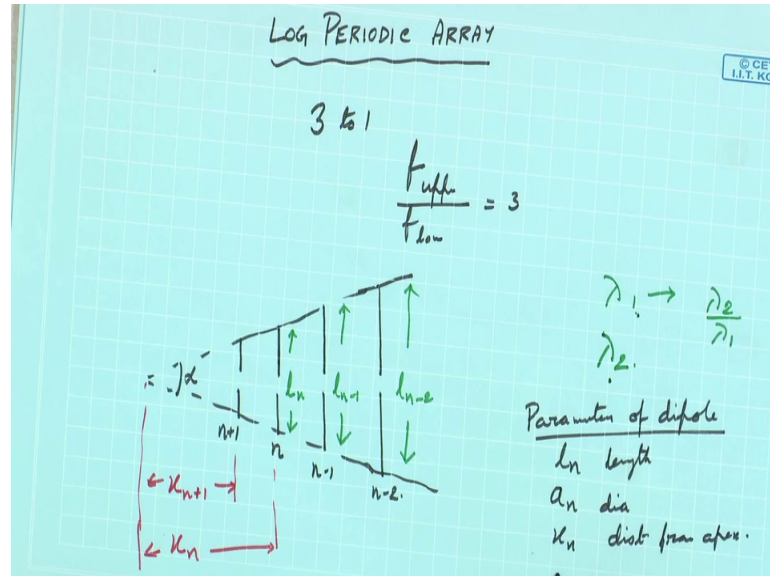 LOG PERIODIC ARRAY
© CET
I.I.T. KG
3 to 1
f upp / f low = 3
λ1 → λ2 / λ1
λ2.
= ) α
ln ln-1 ln-2
n+1 n n-1 n-2.
xn+1
xn
Parameters of dipole
ln length
an dia
xn dist from apex.